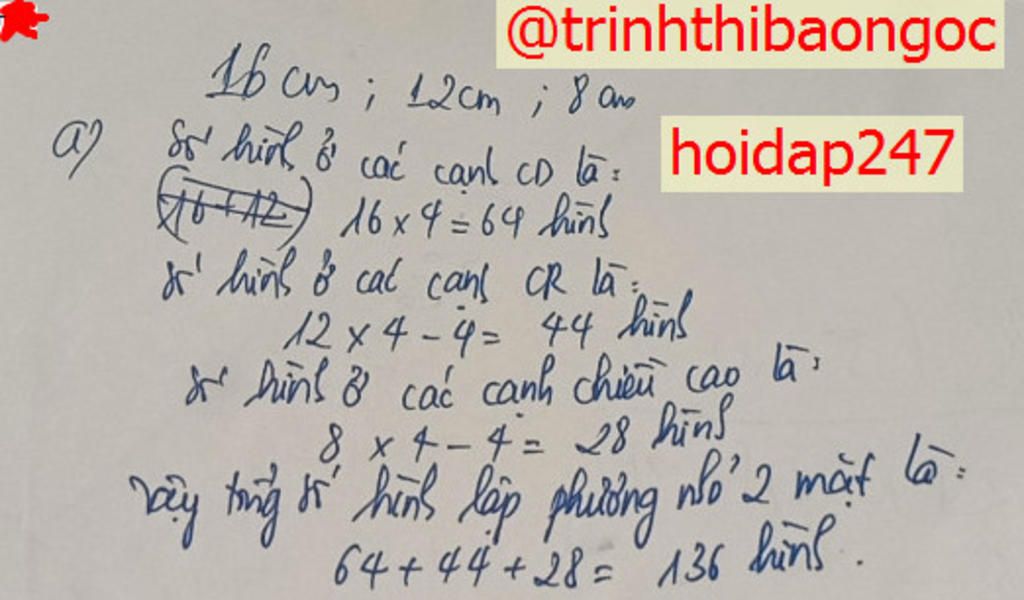 @trinhthibaongoc
16 cm ; 12cm ; 8 cm
hoidap247
a) Số hình ở các cạnh CD là:
(16+12) 16 x 4 = 64 hình
Số hình ở các cạnh CR là:
12 x 4 - 4 = 44 hình
Số hình ở các cạnh chiều cao là:
8 x 4 - 4 = 28 hình
Vậy tổng số hình lập phương nhỏ 2 mặt là:
64 + 44 + 28 = 136 hình.